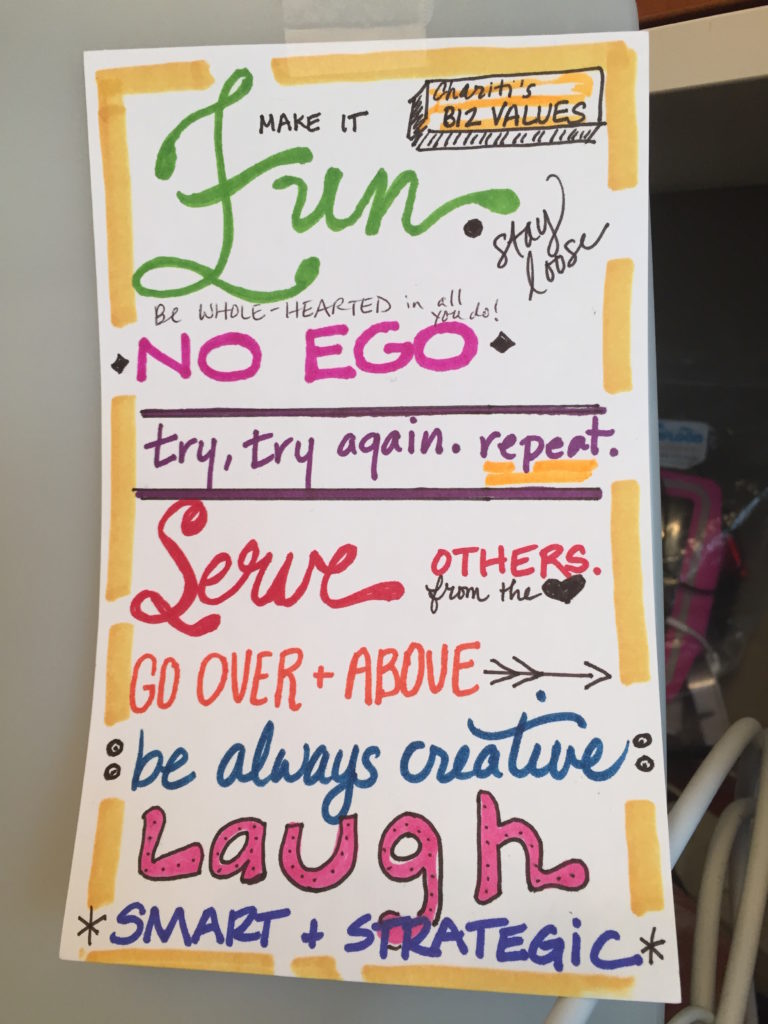 Chariti's
BIZ VALUES
MAKE IT
Fun
stay
loose
Be WHOLE-HEARTED in all
you do!
NO EGO
try, try again. repeat.
Serve OTHERS.
from the
GO OVER + ABOVE
be always creative
Laugh
* SMART + STRATEGIC *